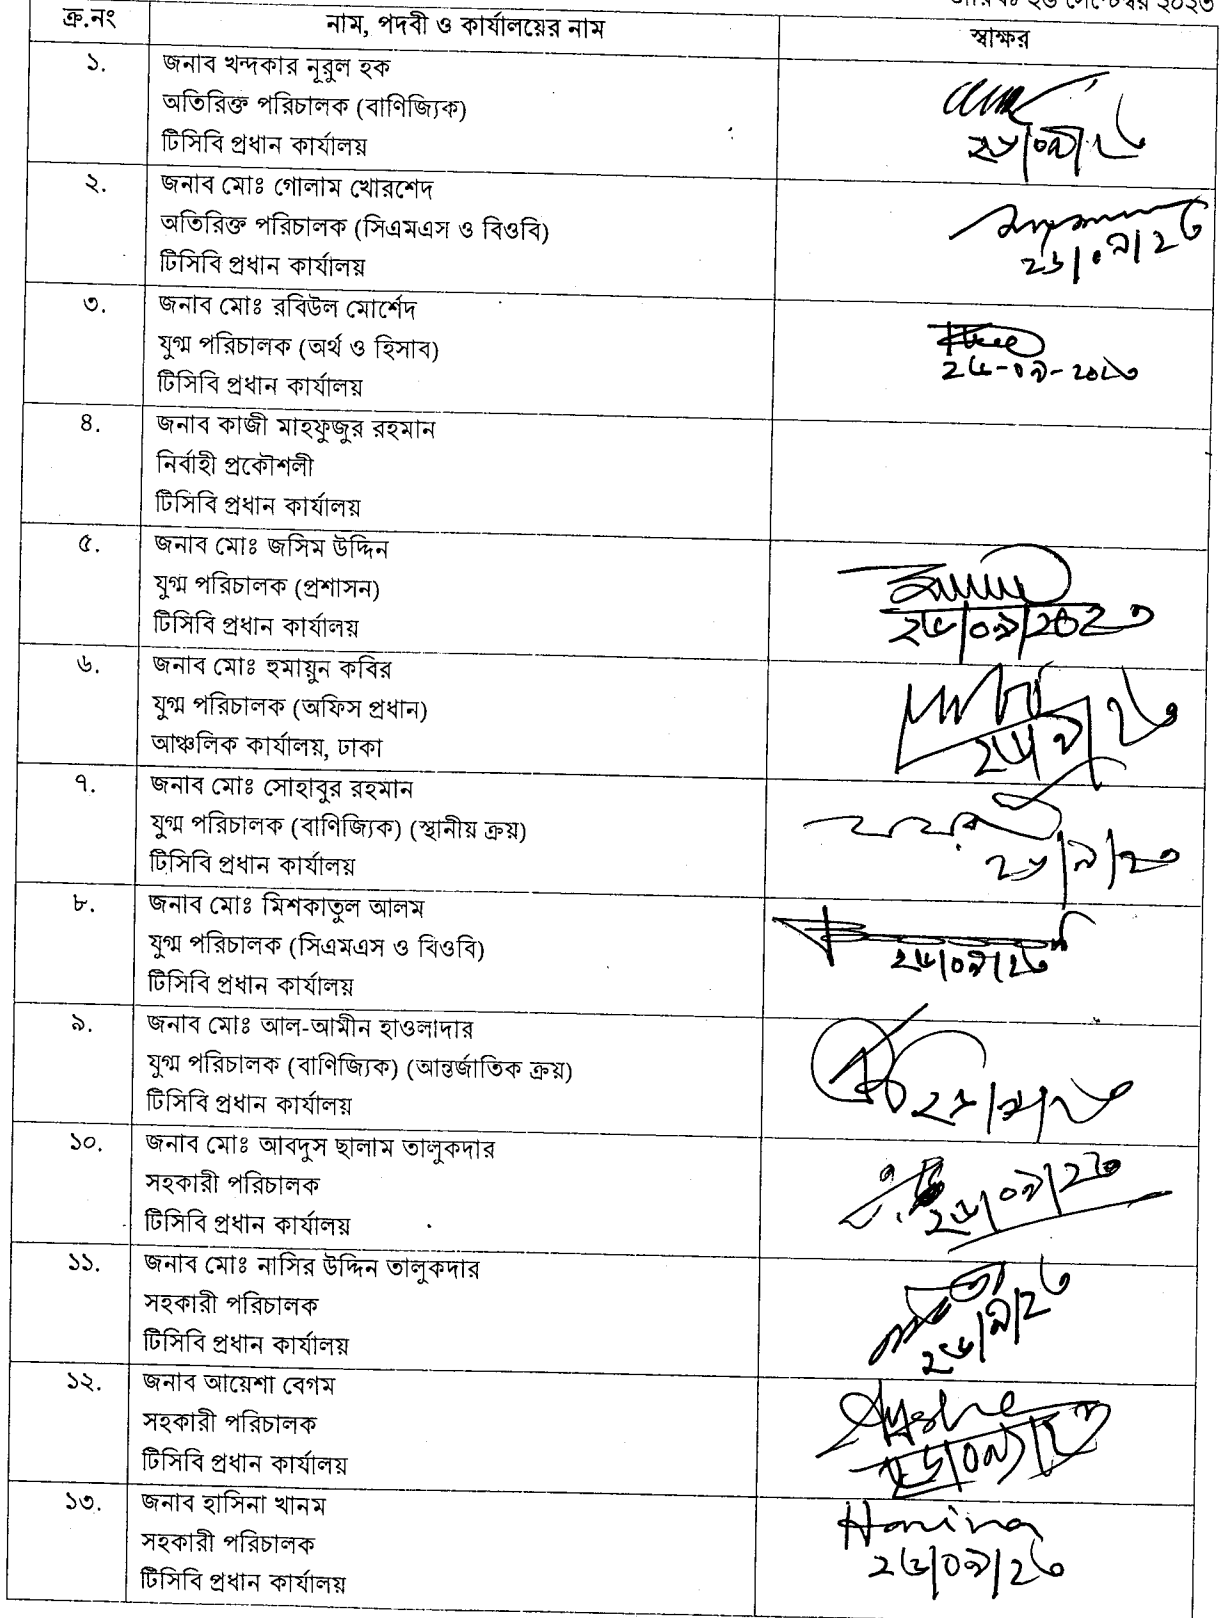 তারিখঃ ২৬ সেপ্টেম্বর ২০২৩
ক্র.নং নাম, পদবী ও কার্যালয়ের নাম স্বাক্ষর
১. জনাব খন্দকার নূরুল হক
অতিরিক্ত পরিচালক (বাণিজ্যিক)
টিসিবি প্রধান কার্যালয়
২৬/০৯/২৩
২. জনাব মোঃ গোলাম খোরশেদ
অতিরিক্ত পরিচালক (সিএমএস ও বিওবি)
টিসিবি প্রধান কার্যালয়
২৬/০৯/২৩
৩. জনাব মোঃ রবিউল মোর্শেদ
যুগ্ম পরিচালক (অর্থ ও হিসাব)
টিসিবি প্রধান কার্যালয়
২৬-০৯-২০২৩
৪. জনাব কাজী মাহফুজুর রহমান
নির্বাহী প্রকৌশলী
টিসিবি প্রধান কার্যালয়
৫. জনাব মোঃ জসিম উদ্দিন
যুগ্ম পরিচালক (প্রশাসন)
টিসিবি প্রধান কার্যালয়
২৬/০৯/২০২৩
৬. জনাব মোঃ হুমায়ুন কবির
যুগ্ম পরিচালক (অফিস প্রধান)
আঞ্চলিক কার্যালয়, ঢাকা
২৬/৯/২৩
৭. জনাব মোঃ সোহাবুর রহমান
যুগ্ম পরিচালক (বাণিজ্যিক) (স্থানীয় ক্রয়)
টিসিবি প্রধান কার্যালয়
২৬/৯/২৩
৮. জনাব মোঃ মিশকাতুল আলম
যুগ্ম পরিচালক (সিএমএস ও বিওবি)
টিসিবি প্রধান কার্যালয়
২৬/০৯/২৩
৯. জনাব মোঃ আল-আমীন হাওলাদার
যুগ্ম পরিচালক (বাণিজ্যিক) (আন্তর্জাতিক ক্রয়)
টিসিবি প্রধান কার্যালয়
২৬/৯/২৩
১০. জনাব মোঃ আবদুস ছালাম তালুকদার
সহকারী পরিচালক
টিসিবি প্রধান কার্যালয়
২৬/০৯/২৩
১১. জনাব মোঃ নাসির উদ্দিন তালুকদার
সহকারী পরিচালক
টিসিবি প্রধান কার্যালয়
২৬/৯/২৩
১২. জনাব আয়েশা বেগম
সহকারী পরিচালক
টিসিবি প্রধান কার্যালয়
২৬/০৯/২৩
১৩. জনাব হাসিনা খানম
সহকারী পরিচালক
টিসিবি প্রধান কার্যালয়
Hasina
২৬/০৯/২৩